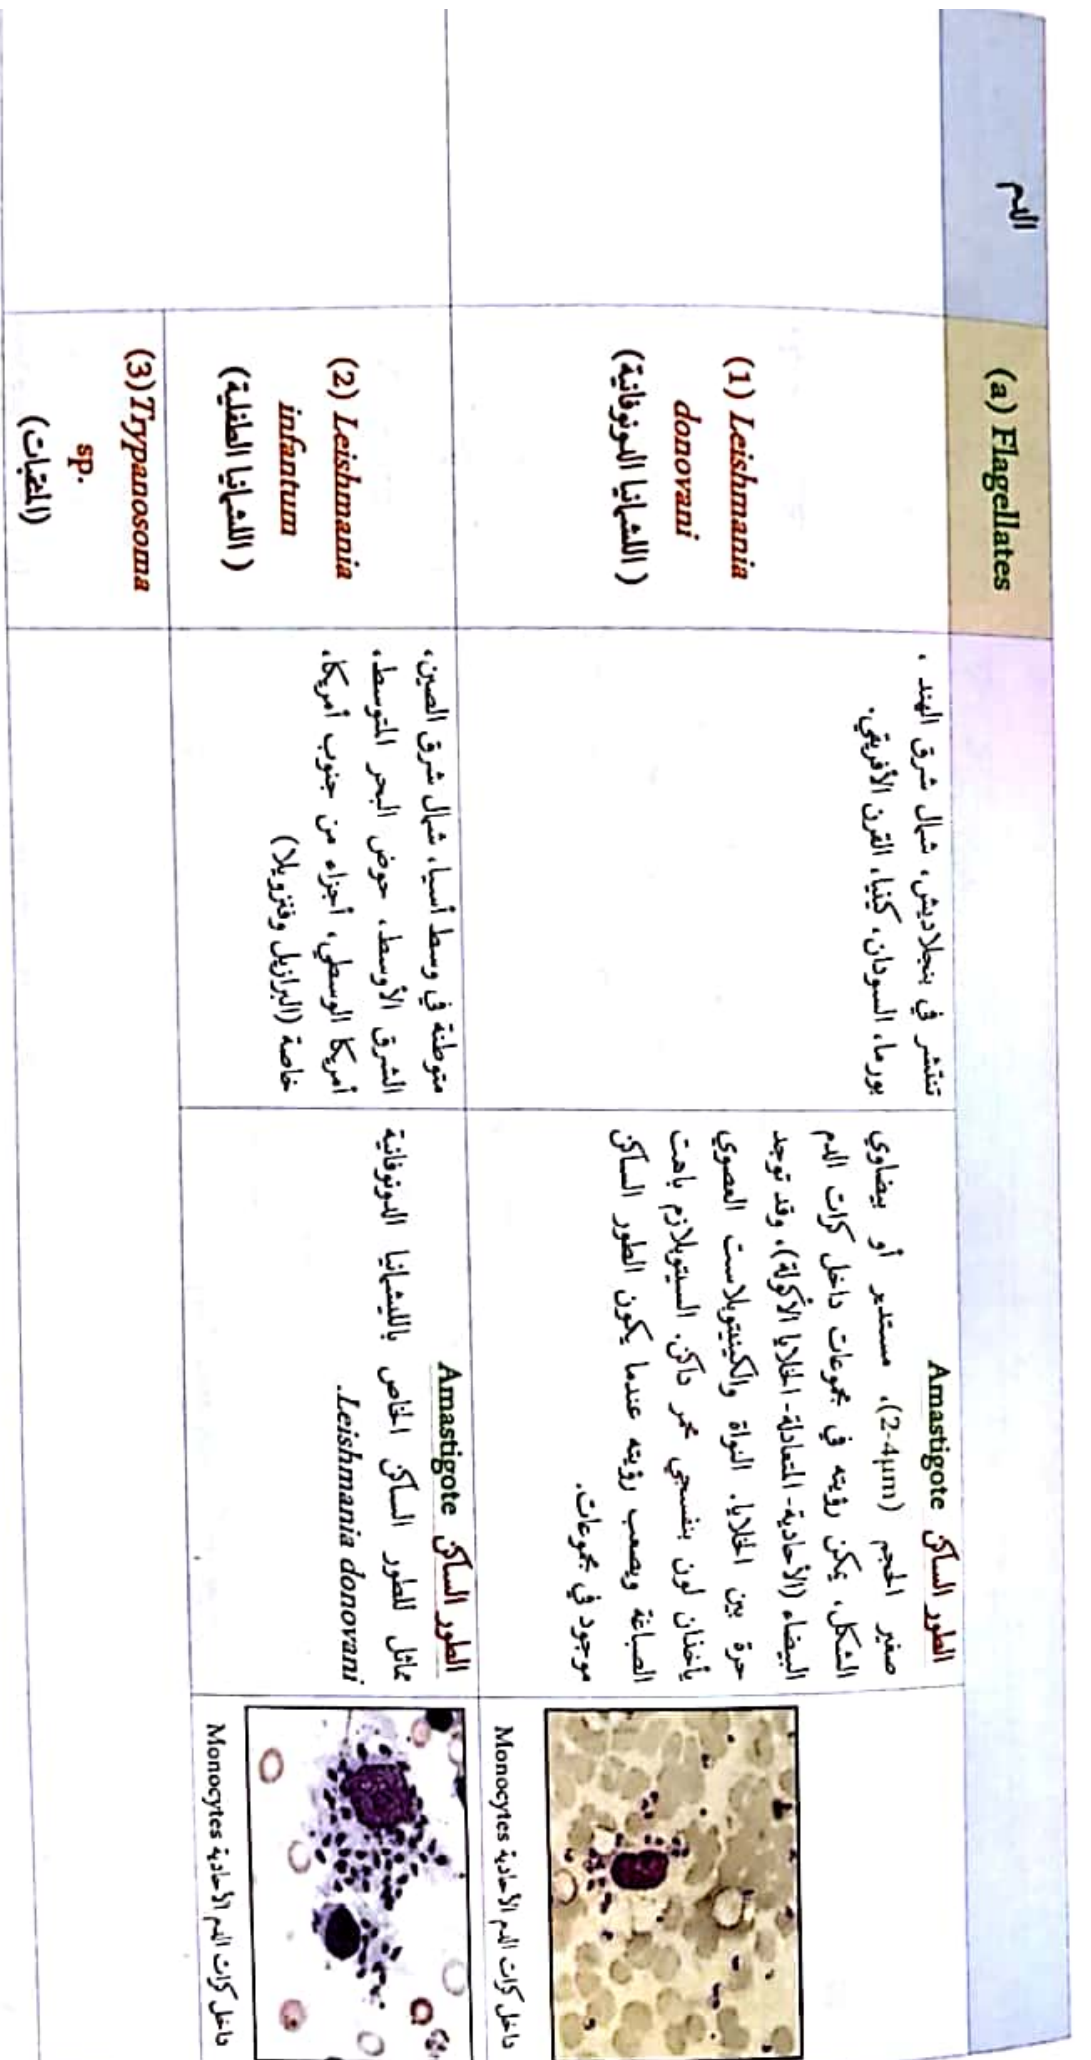 الدم
(a) Flagellates
(1) Leishmania
donovani
(اللشمانيا الدونوفانية)
تنتشر في بنجلاديش، شمال شرق الهند،
بورما، السودان، كينيا، القرن الأفريقي.
الطور الساكن Amastigote
صغير الحجم (2-4µm)، مستدير أو بيضاوي
الشكل، يمكن رؤيته في مجموعات داخل كرات الدم
البيضاء (الأحادية- المتعادلة- الخلايا الأكولة)، وقد توجد
حرة بين الخلايا. النواة والكينيتوبلاست العصوي
يأخذان لون بنفسجي محمر داكن. السيتوبلازم باهت
الصباغة ويصعب رؤيته عندما يكون الطور الساكن
موجود في مجموعات.
داخل كرات الدم الأحادية Monocytes
(2) Leishmania
infantum
(اللشمانيا الطفلية)
متوطنة في وسط أسيا، شمال شرق الصين،
الشرق الأوسط، حوض البحر المتوسط،
أمريكا الوسطي، أجزاء من جنوب أمريكا،
خاصة (البرازيل وفنزويلا)
الطور الساكن Amastigote
مماثل للطور الساكن الخاص بالليشمانيا الدونوفانية
Leishmania donovani.
داخل كرات الدم الأحادية Monocytes
(3)Trypanosoma
sp.
(المثقبات)